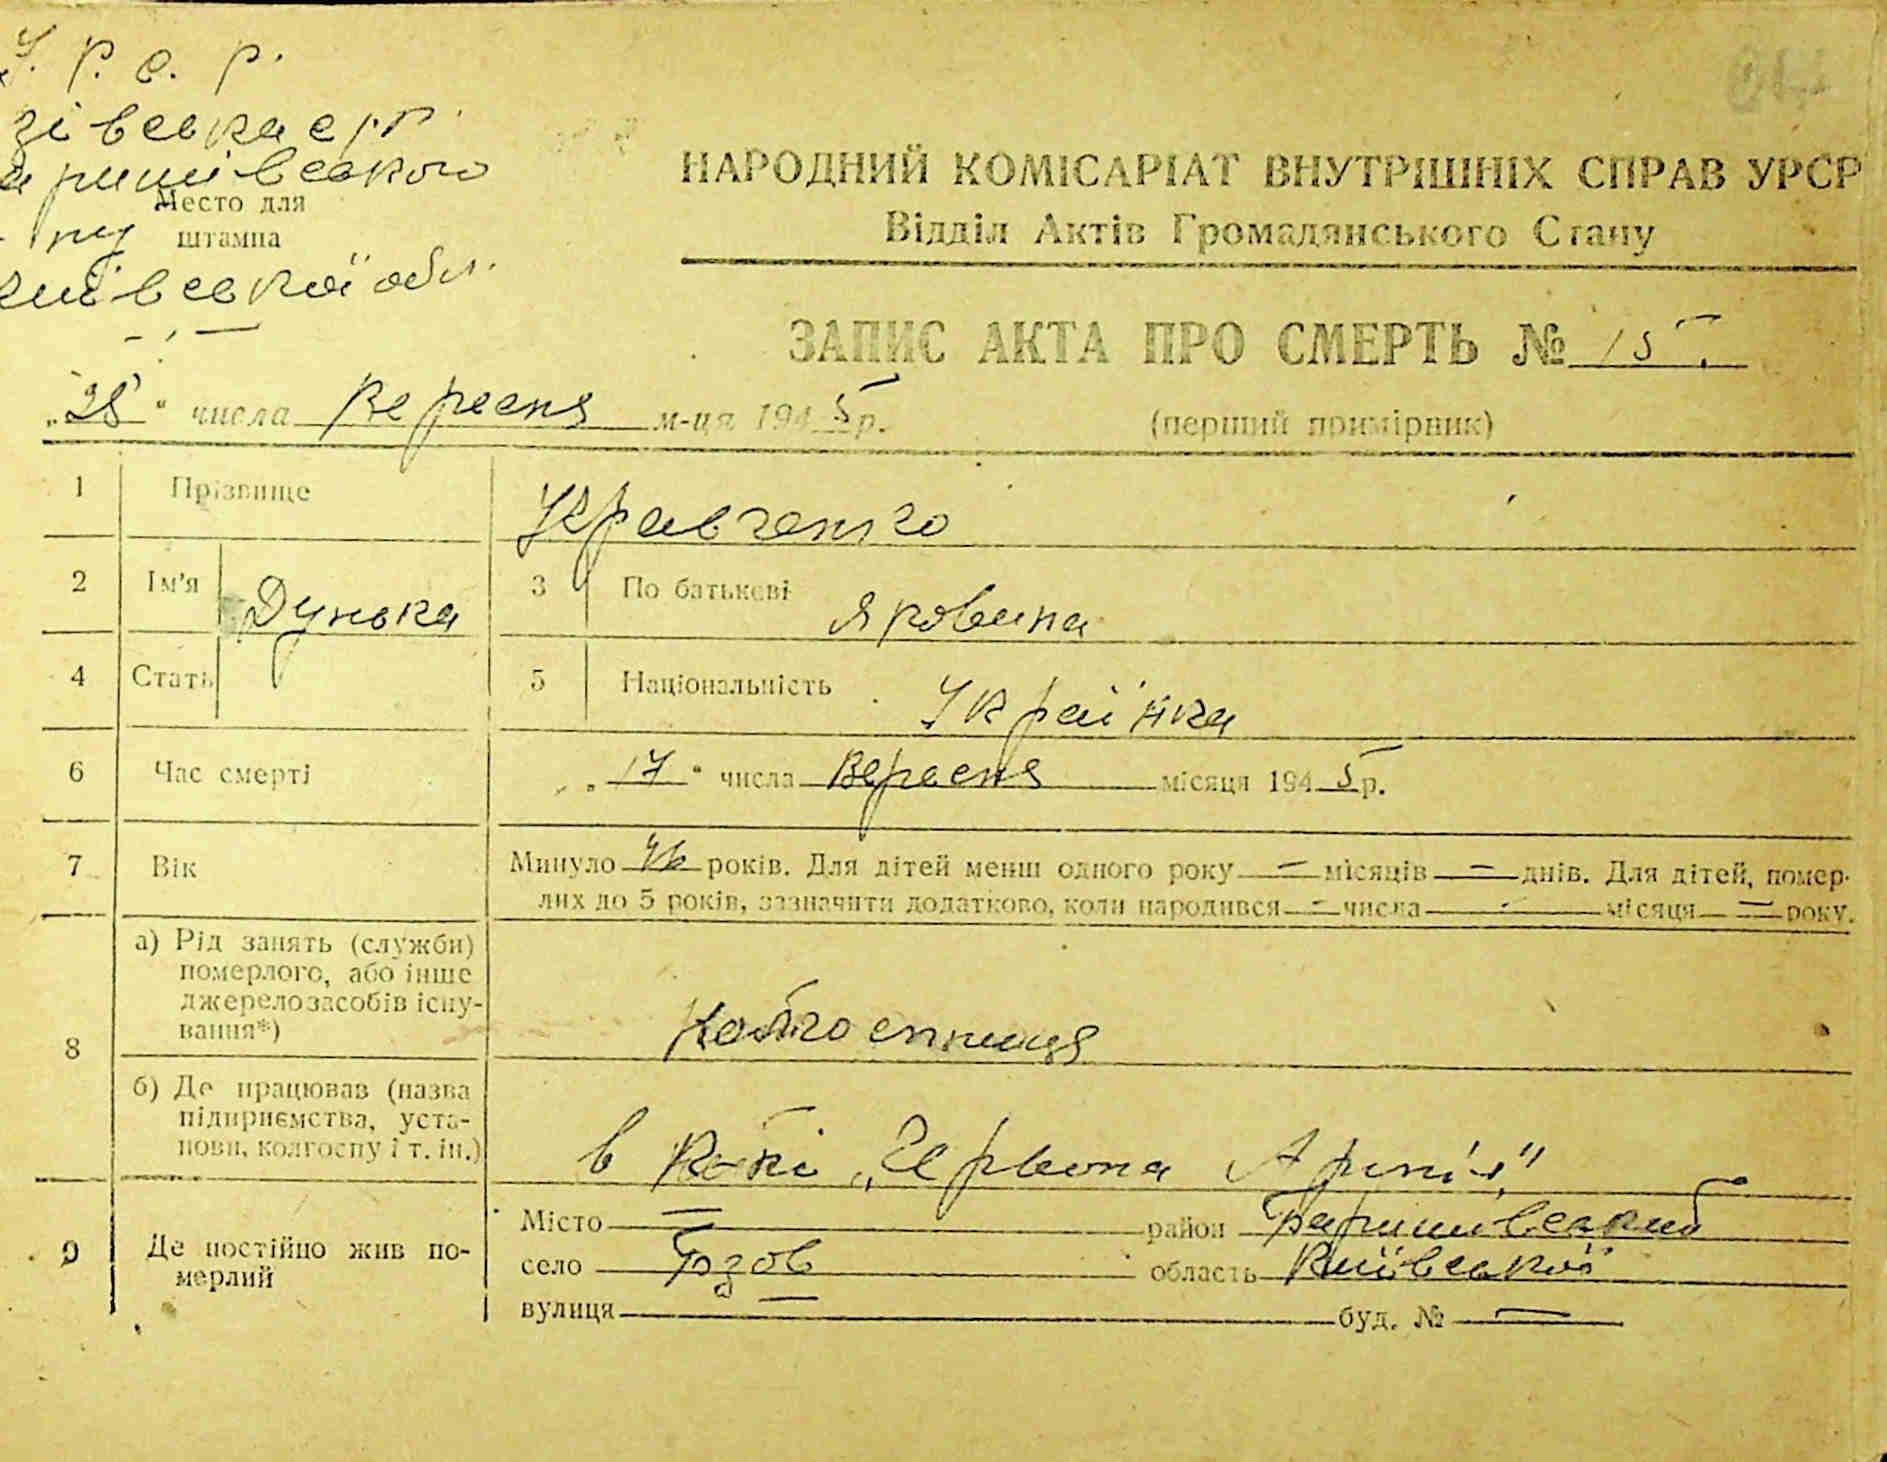 У. Р. С. Р.
зівська с/р
ришівського
Место для
р-ну штампа
Київської обл.
НАРОДНИЙ КОМІСАРІАТ ВНУТРІШНІХ СПРАВ УРСР
Відділ Актів Громадянського Стану
ЗАПИС АКТА ПРО СМЕРТЬ № 15.
„28“ числа Вересня м-ця 1945 р.
(перший примірник)
1 Прізвище Кравченко
2 Ім'я Дунька 3 По батькові Яковина
4 Стать 5 Національність Українка
6 Час смерті „17“ числа Вересня місяця 1945 р.
7 Вік Минуло 46 років. Для дітей менш одного року — місяців — днів. Для дітей, помер-
лих до 5 років, зазначити додатково, коли народився — числа — місяця — року.
8 а) Рід занять (служби)
померлого, або інше
джерело засобів існу-
вання*)
Колгоспниця
б) Де працював (назва
підприємства, уста-
нови, колгоспу і т. ін.)
в к-пі „Червона Армія"
9 Де постійно жив по-
мерлий
Місто — район Баришівський
село Бзов область Київської
вулиця — буд. № —